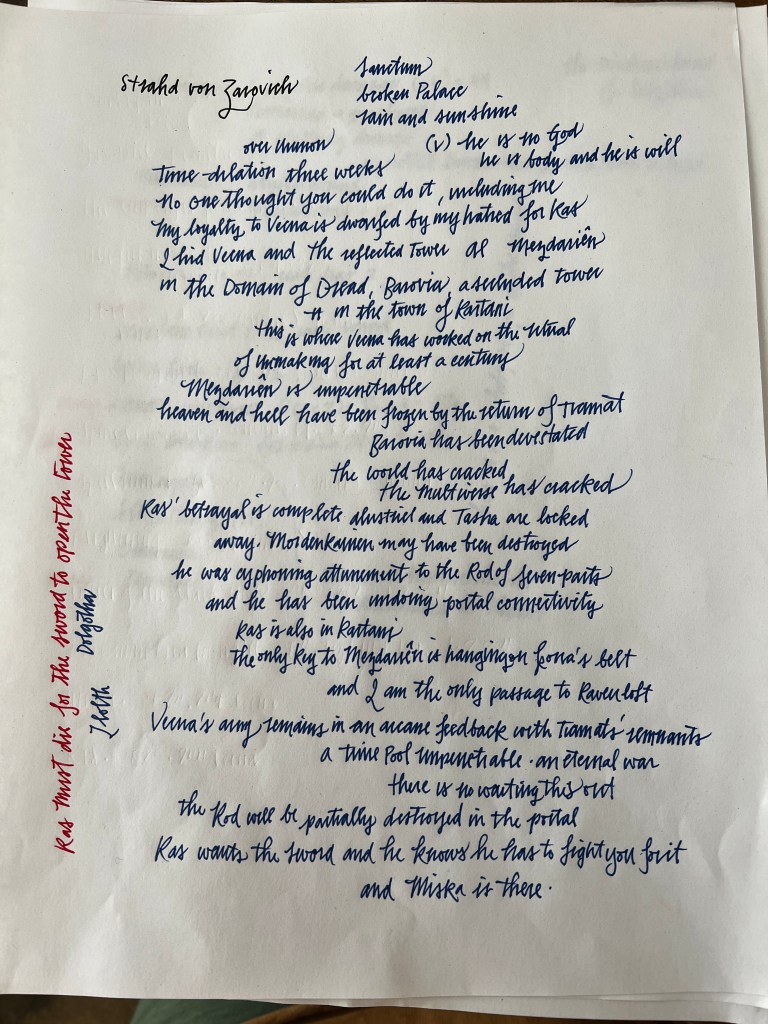 Strahd von Zarovich
Sanctum
broken Palace
rain and sunshine
over
(v) he is no God
he is body and he is will
Time dilation three weeks
No one thought you could do it, including me
My loyalty to Vecna is dwarfed by my hatred for Kas
I hid Vecna and the reflected Tower of Mezdariên
in the Domain of Dread, Barovia, a secluded tower
in the town of Kartani
this is where Vecna has worked on the ritual
of unmaking for at least a century
Mezdariên is impenetrable
heaven and hell have been frozen by the return of Tiamat
Barovia has been devestated
the world has cracked
the multiverse has cracked
Kas' betrayal is complete alustriel and Tasha are locked
away. Mordenkainen may have been destroyed
he was cyphoning attunement to the Rod of Seven parts
and he has been undoing portal connectivity
Kas is also in Kartani
the only key to Mezdariên is hanging on belt
and I am the only passage to Ravenloft
Vecna's army remains in an arcane feedback with Tiamats' remnants
a time Pool impenetrable. an eternal war
there is no waiting this out
the Rod will be partially destroyed in the portal
Kas wants the sword and he knows he has to fight you for it
and Miska is there.
Kas must die for the sword to open the tower
Dolgotha